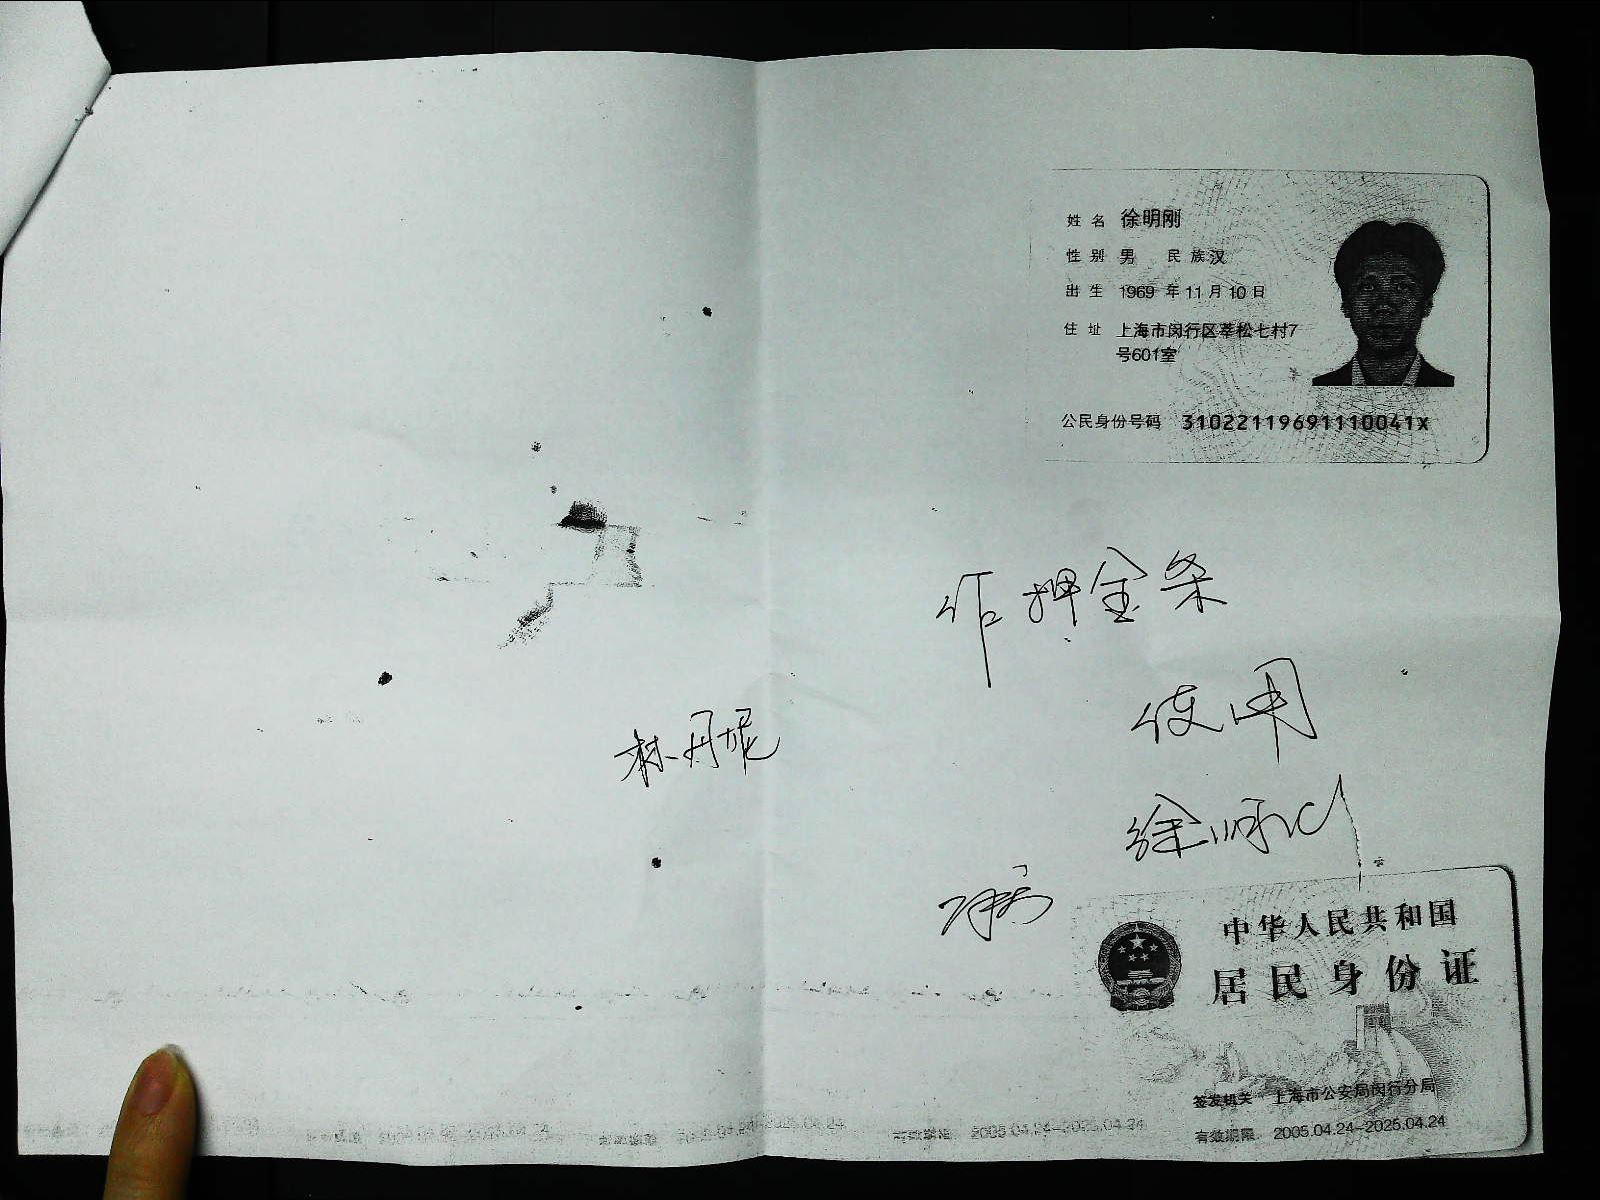 姓名 徐明刚
性别 男 民族 汉
出生 1969 年 11 月 10 日
住址 上海市闵行区莘松七村7
号601室
公民身份号码 31022119691110041X
作押金条
使用
林丹妮
中华人民共和国
居民身份证
签发机关 上海市公安局闵行分局
有效期限 2005.04.24-2025.04.24